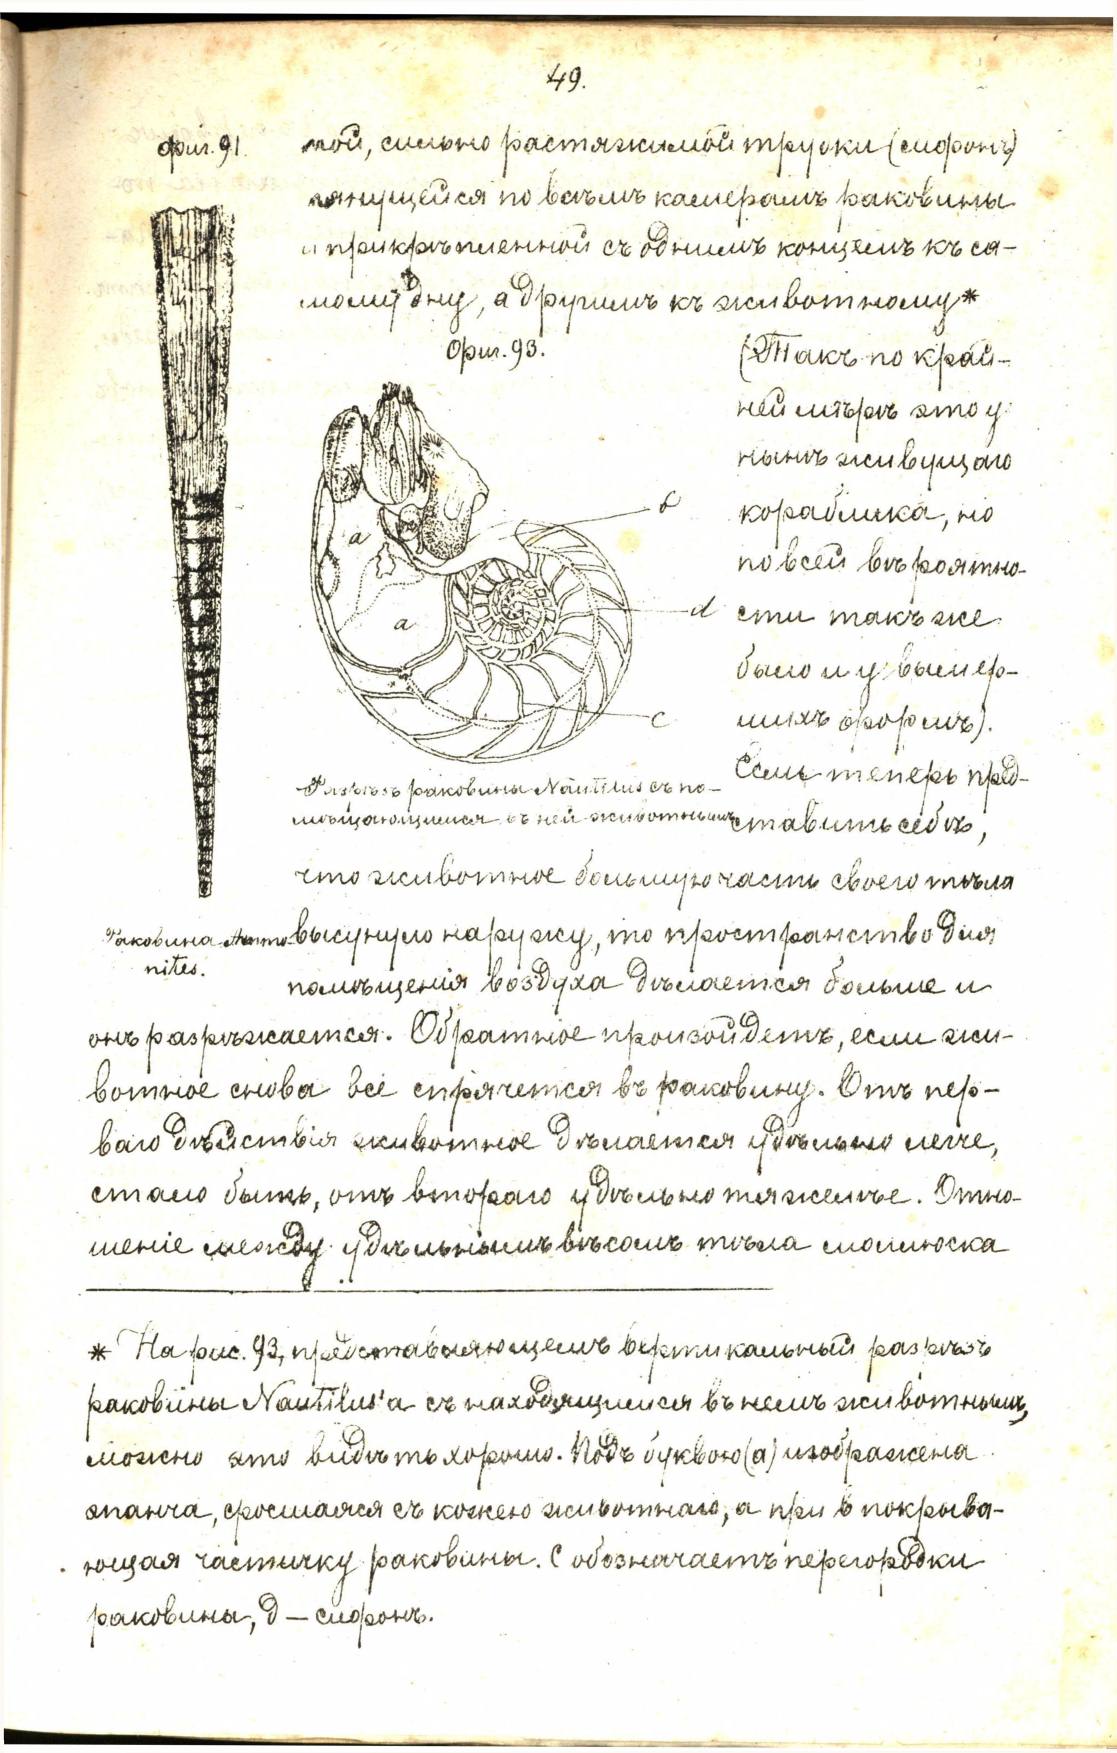 49.
Фиг. 91.
той, сильно растяжимой трубки (сифонъ)
тянущейся по всѣмъ камерамъ раковины
и прикрѣпленной съ однимъ концемъ къ са-
мому дну, а другимъ къ животному*
Фиг. 93.
(Такъ по край-
ней мѣрѣ это у
нынѣ живущаго
кораблика, но
по всей вѣроятно-
сти такъ же
было и у вымер-
шихъ формъ).
Если теперь пред-
ставить себѣ,
a
a
b
d
c
Разрѣзъ раковины Nautilus съ по-
мѣщающимся въ ней животнымъ
что животное большую часть своего тѣла
высунуло наружу, то пространство для
помѣщенія воздуха дѣлается больше и
Раковина Ammo-
nites.
онъ разрѣжается. Обратное произойдетъ, если жи-
вотное снова все спрячется въ раковину. Отъ пер-
ваго дѣйствія животное дѣлается удѣльно легче,
стало быть, отъ втораго удѣльно тяжелѣе. Отно-
шеніе между удѣльнымъ вѣсомъ тѣла молюска
* На рис. 93, представляющемъ вертикальный разрѣзъ
раковины Nautilus'a съ находящимся въ немъ животнымъ,
можно это видѣть хорошо. Подъ буквою (а) изображена
эпанча, сросшаяся съ кожею животнаго, а при в покрыва-
ющая частичку раковины. С обозначаетъ перегородки
раковины, д — сифонъ.